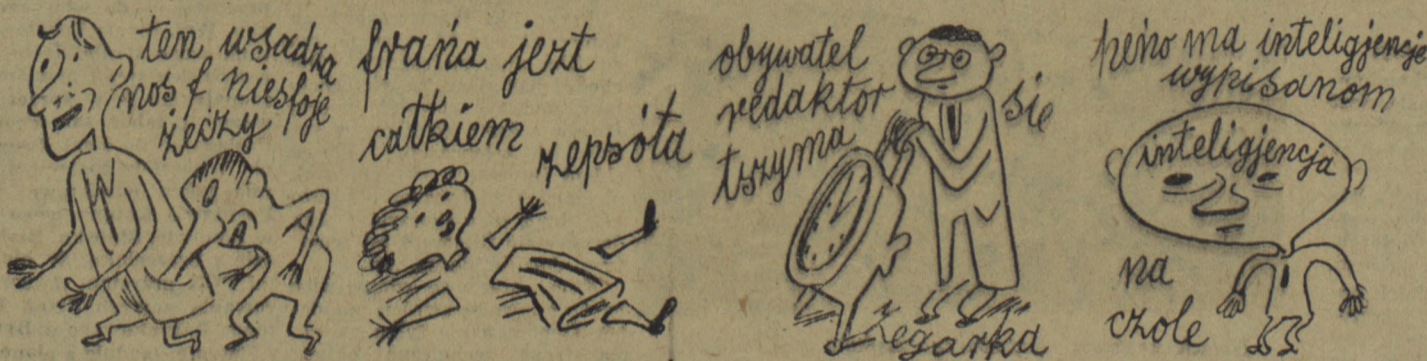 ten wsadza
nos f niesfoje
żeczy
frańa jezt
całkiem
zepsóta
obywatel
redaktor
tszyma
się
zegarka
peńo ma inteligjencje
wypisanom
inteligjencja
na
czole